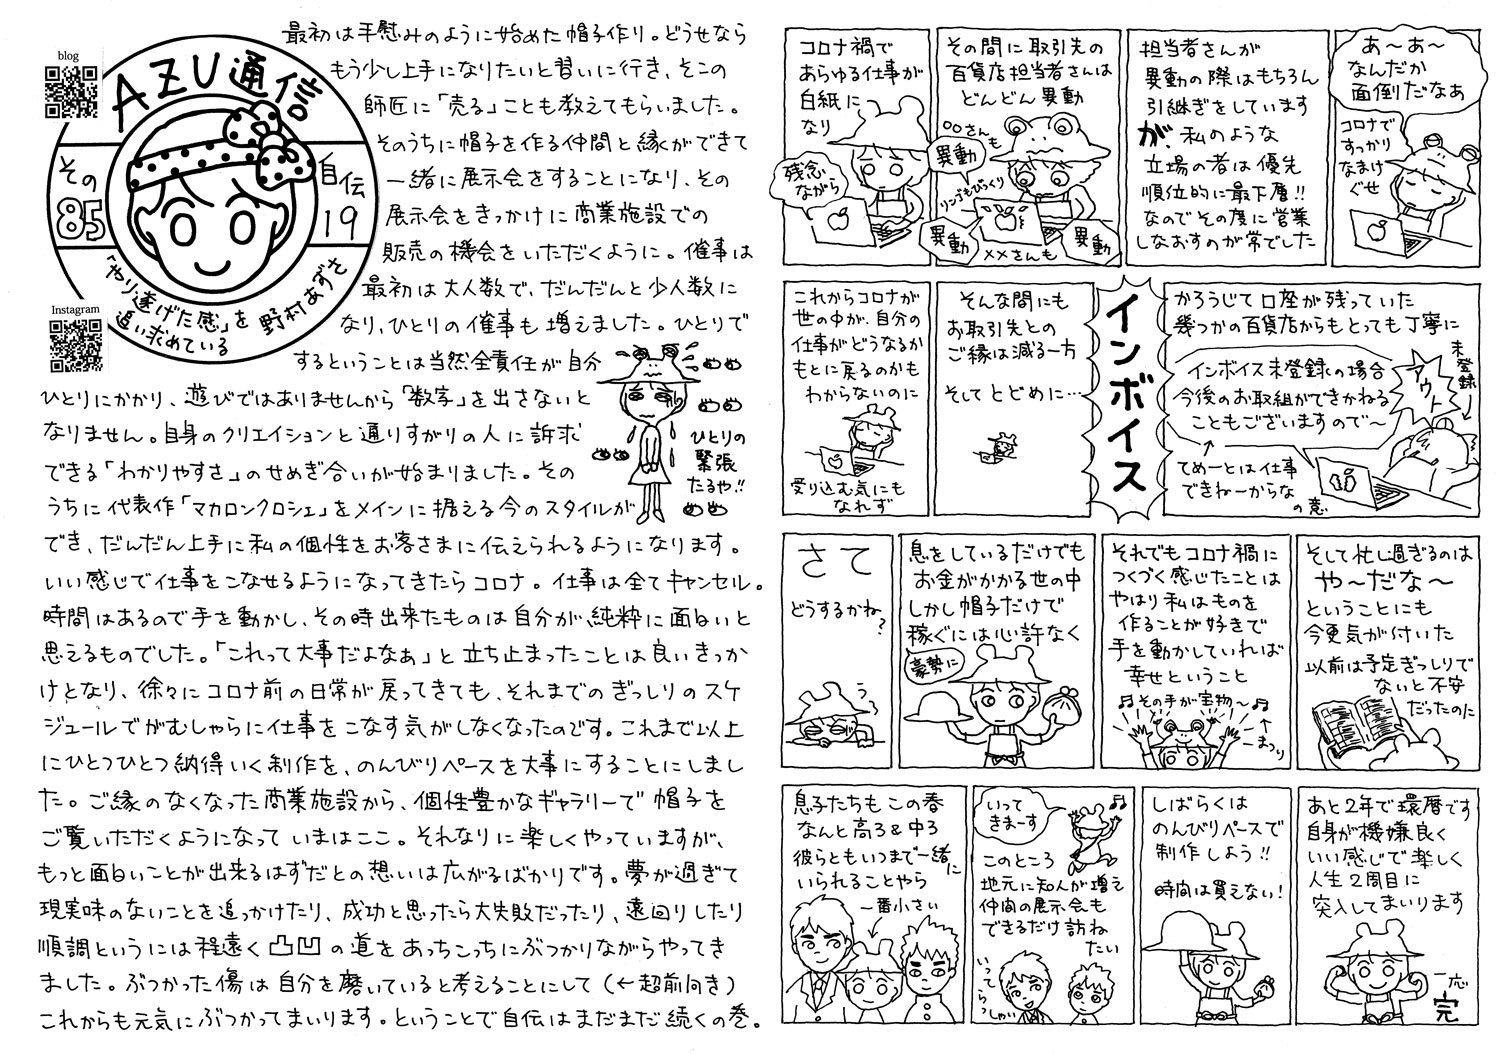 blog
AZU通信
その
85
自伝
19
「やり遂げた感」を
追い求めている
野村あずさ
Instagram
最初は手慰みのように始めた帽子作り。どうせなら
もう少し上手になりたいと習いに行き、そこの
師匠に「売る」ことも教えてもらいました。
そのうちに帽子を作る仲間と縁ができて
一緒に展示会をすることになり、その
展示会をきっかけに商業施設での
販売の機会をいただくように。催事は
最初は大人数で、だんだんと少人数に
なり、ひとりの催事も増えました。ひとりで
するということは当然全責任が自分
ひとりにかかり、遊びではありませんから「数字」を出さないと
なりません。自身のクリエイションと通りすがりの人に訴求
できる「わかりやすさ」のせめぎ合いが始まりました。その
うちに代表作「マカロンクロシェ」をメインに据える今のスタイルが
でき、だんだん上手に私の個性をお客さまに伝えられるようになります。
いい感じで仕事をこなせるようになってきたらコロナ。仕事は全てキャンセル。
時間はあるので手を動かし、その時出来たものは自分が、純粋に面白いと
思えるものでした。「これって大事だよなぁ」と立ち止まったことは良いきっか
けとなり、徐々にコロナ前の日常が戻ってきても、それまでのぎっしりのスケ
ジュールでがむしゃらに仕事をこなす気がしなくなったのです。これまで以上
にひとつひとつ納得いく制作を、のんびりペースを大事にすることにしまし
た。ご縁のなくなった商業施設から、個性豊かなギャラリーで帽子を
ご覧いただくようになっていまはここ。それなりに楽しくやっていますが、
もっと面白いことが出来るはずだとの想いは広がるばかりです。夢が過ぎて
現実味のないことを追っかけたり、成功と思ったら大失敗だったり、遠回りしたり
順調というには程遠く凸凹の道をあっちこっちにぶつかりながらやってき
ました。ぶつかった傷は自分を磨いていると考えることにして(←超前向き)
これからも元気にぶつかってまいります。ということで自伝はまだまだ続くの巻。
ひとりの
緊張
たるや!!
コロナ禍で
あらゆる仕事が
白紙に
なり
残念
ながら
その間に取引先の
百貨店担当者さんは
どんどん異動
○○さん
も
異動
リンゴもびっくり
異動
××さんも
異動
担当者さんが
異動の際はもちろん
引継ぎをしています
が、私のような
立場の者は優先
順位的に最下層!!
なのでその度に営業
しなおすのが常でした
あ〜あ〜
なんだか
面倒だなあ
コロナで
すっかり
なまけ
ぐせ
これからコロナが
世の中が、自分の
仕事がどうなるか
もとに戻るのかも
わからないのに
売り込む気にも
なれず
そんな間にも
お取引先との
ご縁は減る一方
そしてとどめに…
インボイス
かろうじて口座が残っていた
幾つかの百貨店からもとっても丁寧に
インボイス未登録の場合
今後のお取組ができかねる
こともございますので〜
↑
てめーとは仕事
できねーからな
の意
アウト
未登録
↓
さて
どうするかね?
う
息をしているだけでも
お金がかかる世の中
しかし帽子だけで
稼ぐには心許なく
豪勢に
それでもコロナ禍に
つくづく感じたことは
やはり私はものを
作ることが好きで
手を動かしていれば
幸せということ
♫その手が宝物〜♫
↑
まつり
そして忙し過ぎるのは
や〜だな〜
ということにも
今更気が付いた
以前は予定ぎっしりで
ないと不安
だったのに
息子たちもこの春
なんと高3&中3
彼らともいつまで一緒
に
いられることやら
一番小さい
↓
いって
きまーす
♫
このところ
地元に知人が増え
仲間の展示会も
できるだけ訪ね
たい
いってらっしゃい
しばらくは
のんびりペースで
制作しよう!!
時間は買えない!
あと2年で還暦です
自身が機嫌良く
いい感じで楽しく
人生2周目に
突入してまいります
一応
完